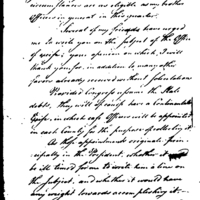 circumstances are as eligible as my brother
Officers in general in this quarter.
Several of my friends have urged
me to write you on the subject of the Office
of            your opinion on which, I will
thank you for, in addition to many other
favors already received without solicitation
Provided Congress assume the State
debts, they will of course have a
        in which case Officers will be appointed
in each County for the purpose of collecting it.
As those appointments originate prin-
cipally in the President, whether it would
be ill timed for me to write him a line on
the subject, and whether it would have
any weight towards accomplishing it —